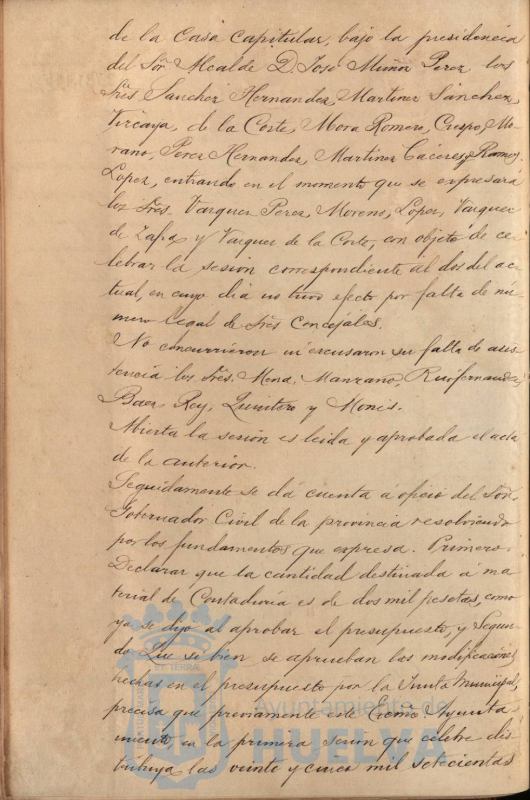 de la Casa Capitular, bajo la presidencia
del Sor. Alcalde D. José Muñoz Perez los
Sres Sanchez Hernandez, Martinez Sánchez,
Vizcaya, de la Corte, Mora Romero, Crespo, Mo-
rano, Perez Hernandez, Martinez Cáceres y Ramos
Lopez, entrando en el momento que se expresará
los Sres. Vazquez Perez, Moreno, Lopez, Vazquez
de Zafra y Vazquez de la Corte, con objeto de ce-
lebrar la sesión correspondiente al dos del ac-
tual, en cuyo dia no tuvo efecto por falta de nú-
mero legal de Sres Concejales.
No concurrieron ni escusaron su falta de asis-
tencia los Sres. Mena, Manzano, Ruifernandez,
Baez, Rey, Quintero y Monis.
Abierta la sesión es leida y aprobada el acta
de la anterior.
Seguidamente se dá cuenta a oficio del Sor.
Gobernador Civil de la provincia resolviendo
por los fundamentos que expresa. Primero.
Declarar que la cantidad destinada á ma-
terial de Contaduría es de dos mil pesetas, como
ya se dijo al aprobar el presupuesto, y Segun-
do Que si bien se aprueban las modificaciones
hechas en el presupuesto por la Junta Municipal,
precisa que previamente este Excmo. Ayunta-
miento en la primera sesion que celebre dis-
tribuya las veinte y cinco mil setecientas
Ayuntamiento de
HUELVA